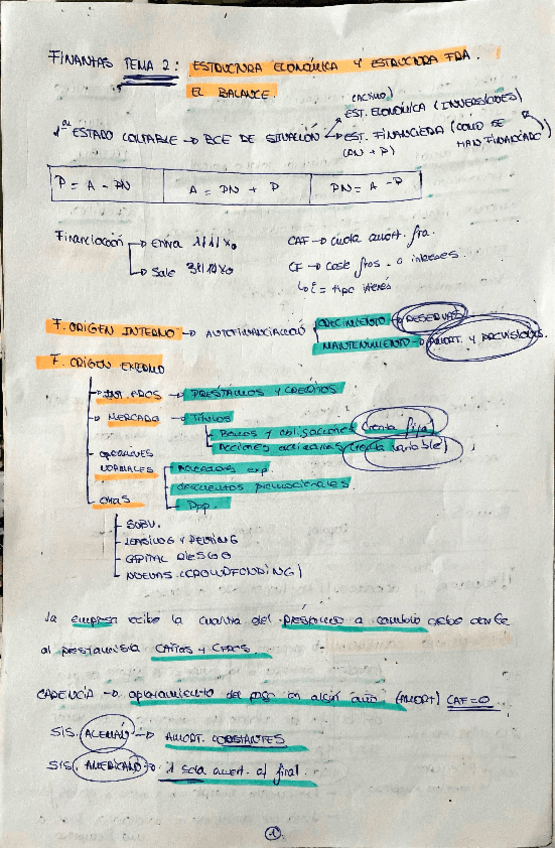 FINANZAS TEMA 2: ESTRUCTURA ECONÓMICA Y ESTRUCTURA FRA.
EL BALANCE.
(ACTIVO)
EST. ECONÓMICA (INVERSIONES)
1er ESTADO CONTABLE → BCE DE SITUACIÓN
EST. FINANCIERA (CÓMO SE HAN FINANCIADO)
(PN + P)
P = A - PN
A = PN + P
PN = A - P
Financiación → Entra 1/1/X0
→ Sale 31/12/X0
CAF → cuota amort. fra.
CF → Coste fros. o intereses.
↳ i = tipo interés
F. ORIGEN INTERNO → AUTOFINANCIACIÓN
CRECIMIENTO → RESERVAS
MANTENIMIENTO → AMORT. Y PROVISIONES.
F. ORIGEN EXTERNO
→ INT. FROS → PRÉSTAMOS Y CRÉDITOS
→ MERCADO → Títulos
Bonos y obligaciones (renta fija)
Acciones (renta variable)
OPERACIONES NORMALES
Acreedores exp
descuentos promocionales
Dpp.
OTRAS
- SUBV.
- LEASING Y RENTING
- CAPITAL RIESGO
- NUEVAS (CROWDFUNDING)
La empresa recibe la cuantía del préstamo a cambio
al prestamista CAFros y CFros.
CARENCIA → aplazamiento del pago en algún año (AMORT) CAF=0
SIS. ALEMÁN → AMORT. CONSTANTES
SIS. AMERICANO → 1 sola amort. al final.
1